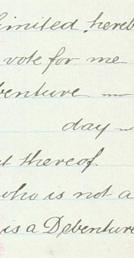 limited hereb
vote for me
benture —
day —
t thereof.
who is not a
is a Debenture